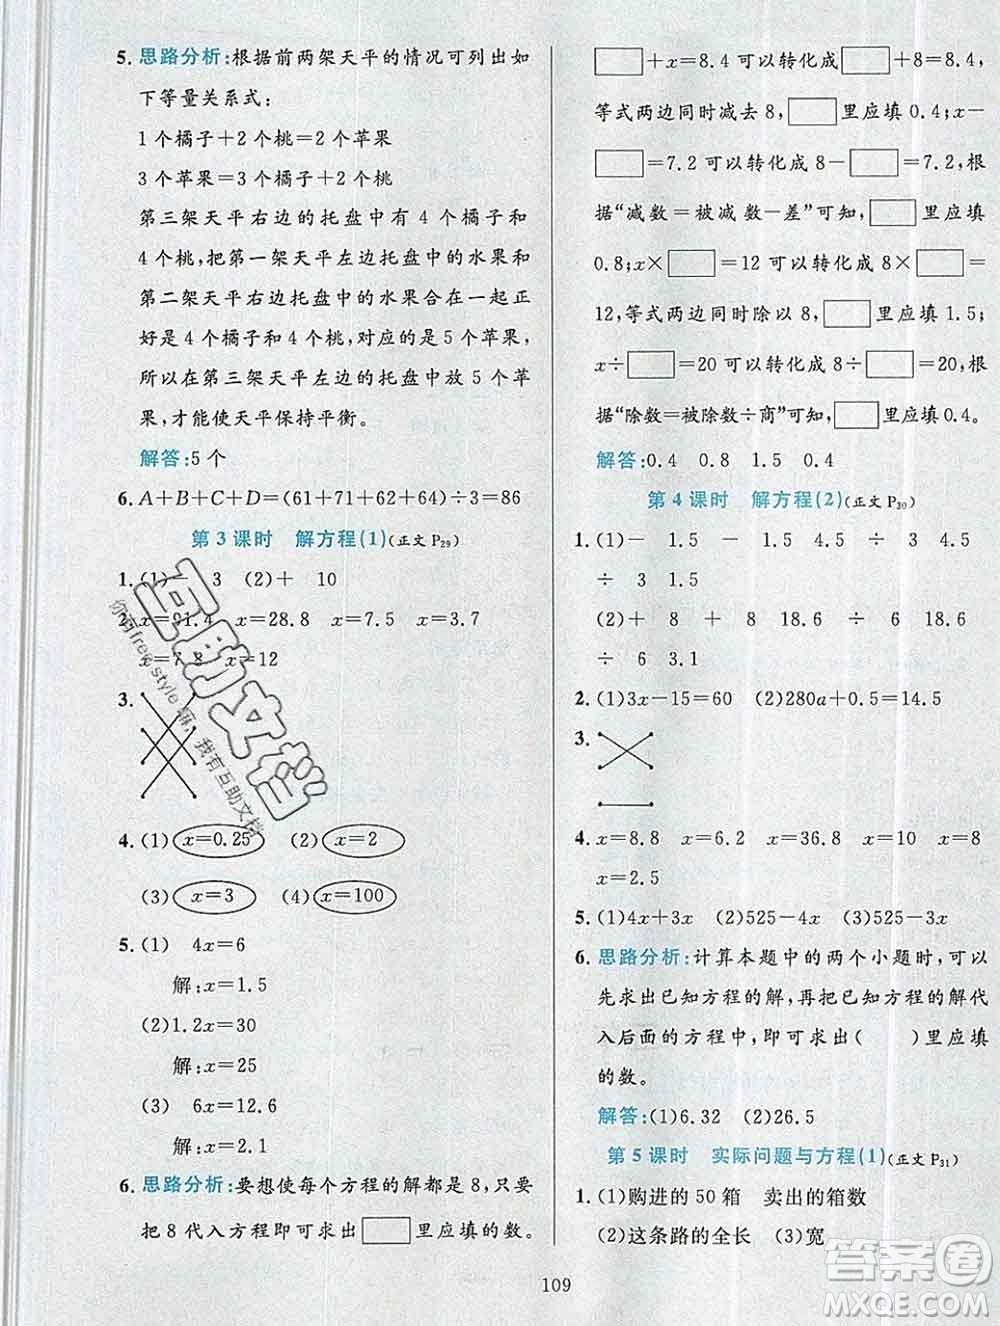 5. 思路分析:根据前两架天平的情况可列出如
下等量关系式:
1个橘子+2个桃=2个苹果
3个苹果=3个橘子+2个桃
第三架天平右边的托盘中有4个橘子和
4个桃,把第一架天平左边托盘中的水果和
第二架天平右边托盘中的水果合在一起正
好是4个橘子和4个桃,对应的是5个苹果,
所以在第三架天平左边的托盘中放5个苹
果,才能使天平保持平衡。
解答:5个
6. A+B+C+D=(61+71+62+64)÷3=86
第3课时 解方程(1)(正文P29)
1. (1)- 3 (2)+ 10
2. x=91.4 x=28.8 x=7.5 x=3.7
x=7.8 x=12
3.
4. (1) x=0.25 (2) x=2
(3) x=3 (4) x=100
5. (1) 4x=6
解:x=1.5
(2)1.2x=30
解:x=25
(3) 6x=12.6
解:x=2.1
6. 思路分析:要想使每个方程的解都是8,只要
把8代入方程即可求出□里应填的数。
□+x=8.4可以转化成□+8=8.4,
等式两边同时减去8,□里应填0.4;x-
□=7.2可以转化成8-□=7.2,根
据“减数=被减数-差”可知,□里应填
0.8;x×□=12可以转化成8×□=
12,等式两边同时除以8,□里应填1.5;
x÷□=20可以转化成8÷□=20,根
据“除数=被除数÷商”可知,□里应填0.4。
解答:0.4 0.8 1.5 0.4
第4课时 解方程(2)(正文P30)
1. (1)- 1.5 - 1.5 4.5 ÷ 3 4.5
÷ 3 1.5
(2)+ 8 + 8 18.6 ÷ 6 18.6
÷ 6 3.1
2. (1)3x-15=60 (2)280a+0.5=14.5
3.
4. x=8.8 x=6.2 x=36.8 x=10 x=8
x=2.5
5. (1)4x+3x (2)525-4x (3)525-3x
6. 思路分析:计算本题中的两个小题时,可以
先求出已知方程的解,再把已知方程的解代
入后面的方程中,即可求出( )里应填
的数。
解答:(1)6.32 (2)26.5
第5课时 实际问题与方程(1)(正文P31)
1. (1)购进的50箱 卖出的箱数
(2)这条路的全长 (3)宽
109
互助文档
答案圈
MXQE.COM